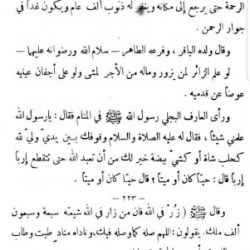 الرحمة حتى يرجع إلى مكانه و له ذنوب ألف عام ويكون غداً في
جوار الرحمن .
وقال ولده الباقر ، وفرعه الطاهر ـ سلام الله ورضوانه عليهما ـ
لو علم الزائر لمن يزور وماله من الأجر لمشى ولو على أجفان عينيه
عوضاً عن قدميه .
ورأى العارف البجلي رسول الله ﷺ في المنام فقال : يارسول الله
علمني شيئاً ، فقال له عليه الصلاة والسلام وقوفك بين يدي وليّ لله
كحلب شاة أو كشي بيضة خير لك من أن تعبد الله حتى تتقطع إرباً
إرباً قال : حيّاً كان أو ميتاً ؟ قال حيّاً كان أو ميتاً .
ـ ٢٢٣ ـ
وقال ﷺ ( زُرْ في الله فإن من زار في الله شيعته سبعة وسبعون
ألف ملك . يقولون : اللهم صله كما وصله فيك ، وناداه مناد طبت وطاب